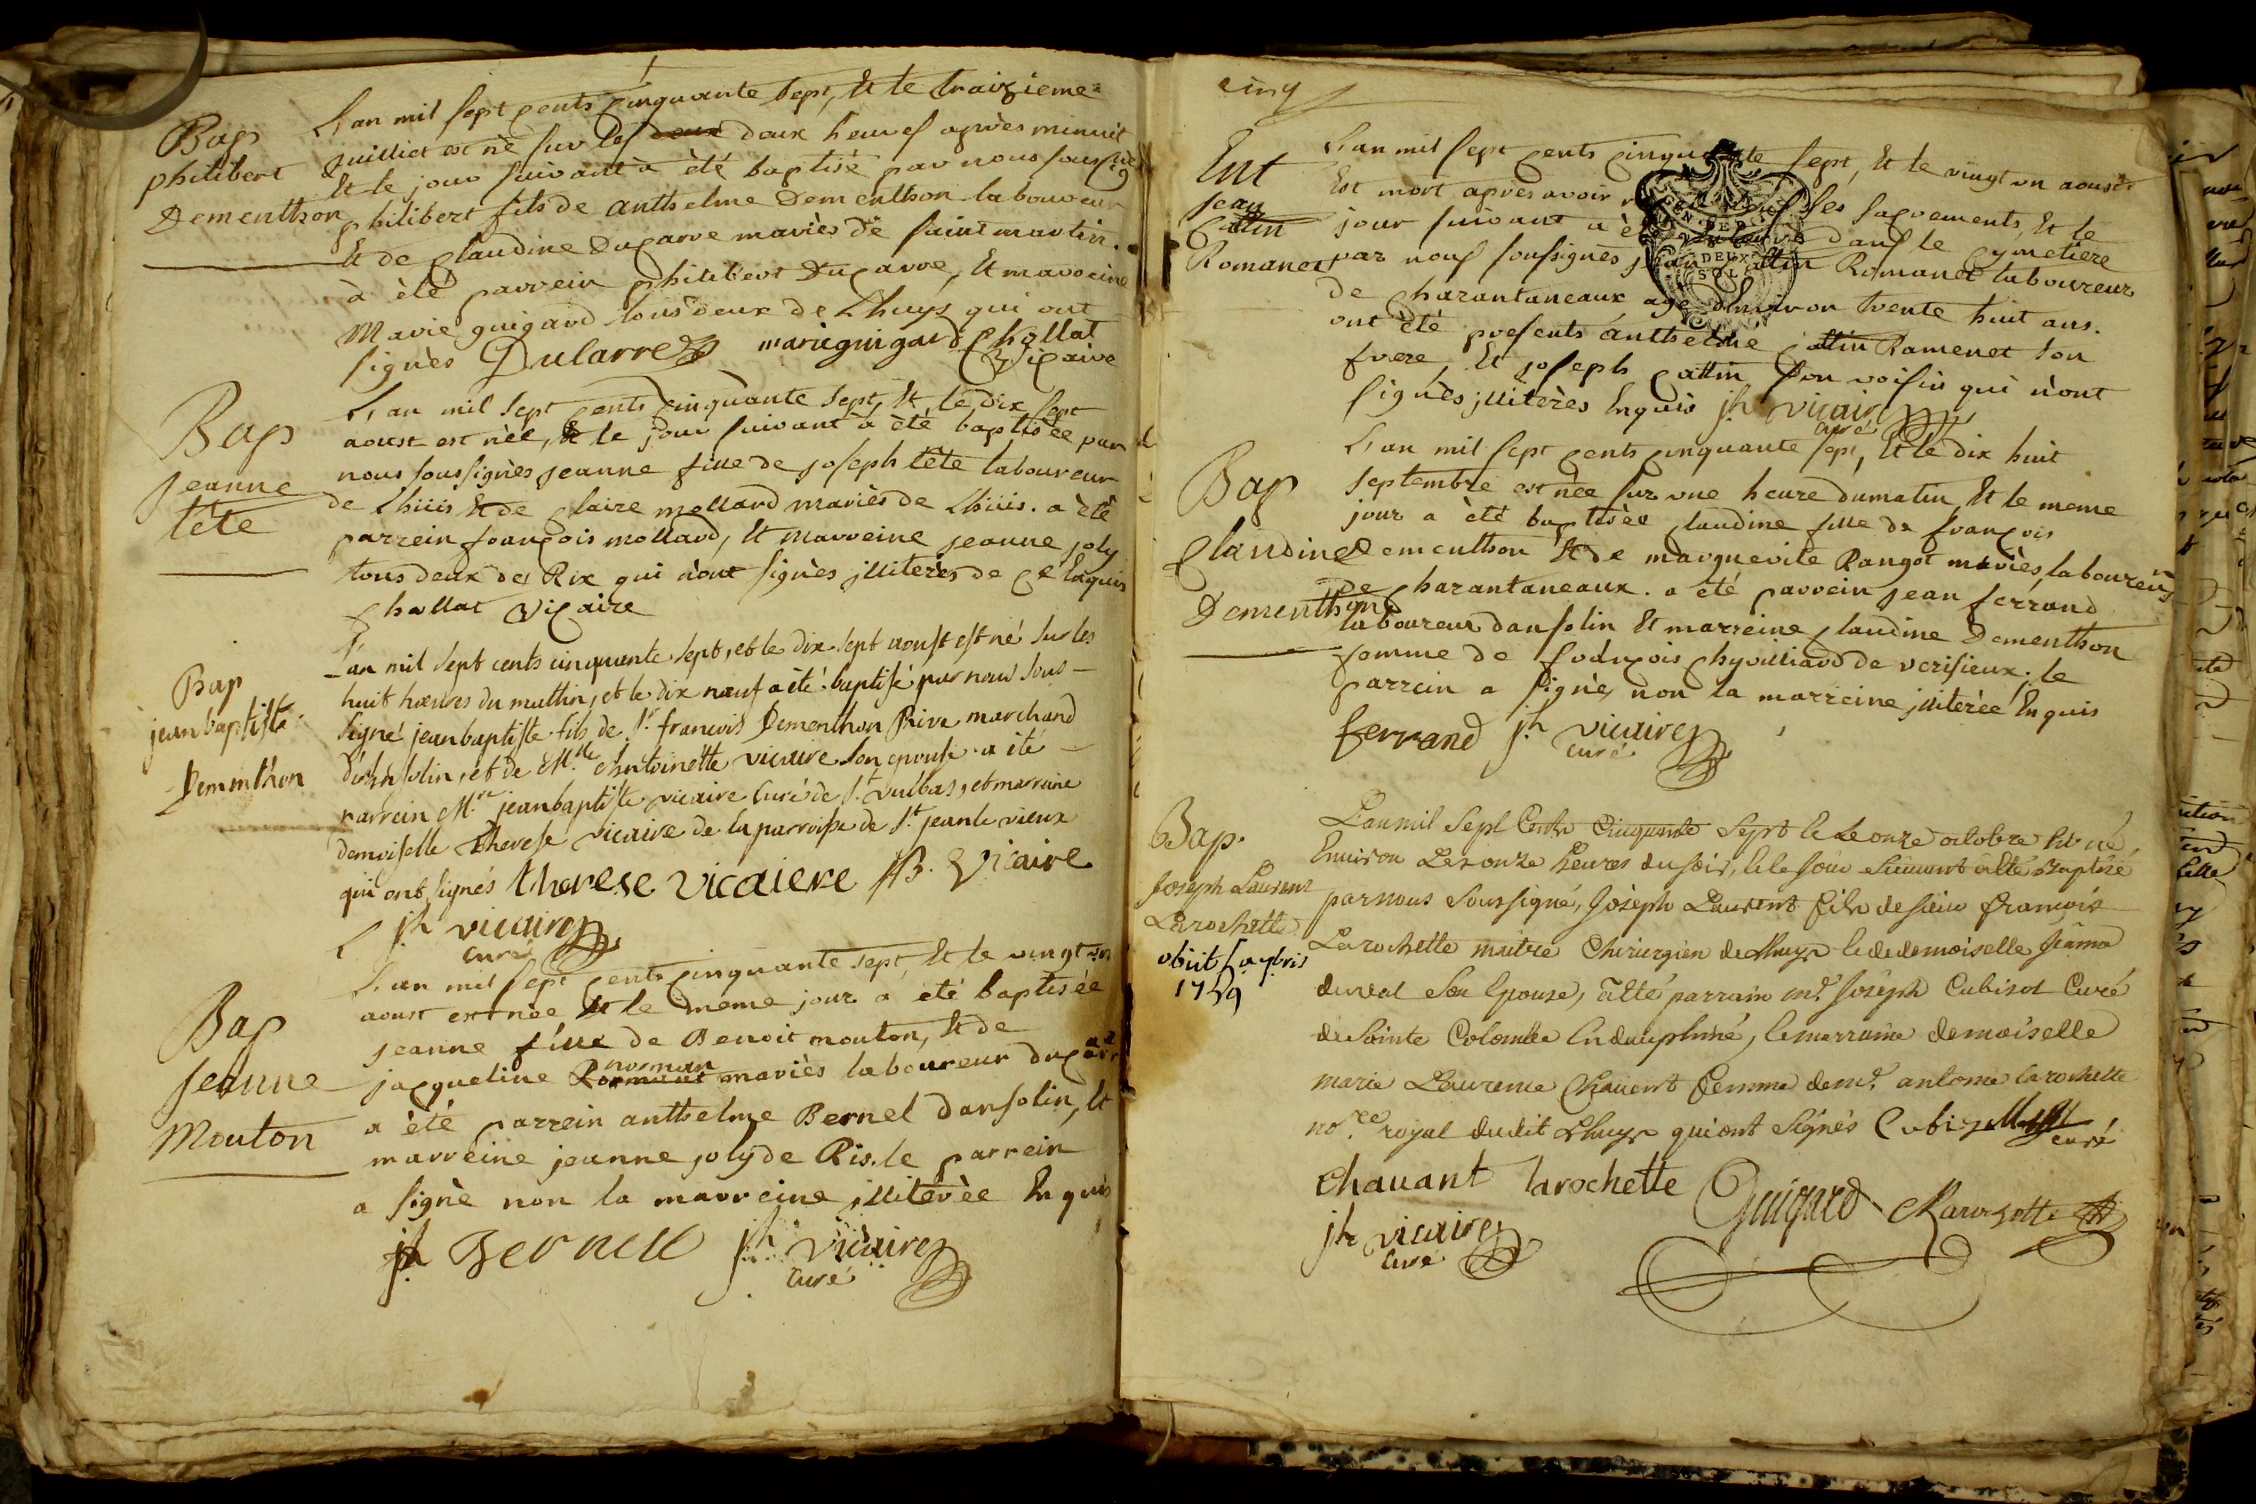 Bap
philibert
Dementhson
L'an mil sept cents cinquante sept, Et le traizieme
juillict est né sur les deux deux heures après minuit
Et le jour suivant à èté baptisé par nous soussignè
philibert fils de anthelme Dementhson laboureur
Et de Claudine Ducarre mariès de saint martin.
à èté parrein philibert Ducarre, Et marreine
Marie guigard tous deux de Lhuys qui ont
signès Dularre marieguigard Chollat
Vicaire
Bap
Jeanne
tête
L'an mil sept cents cinquante sept, Et le dix sept
aoust est nèe, Et le jour suivant à èté baptisée par
nous soussignès jeanne fille de joseph tête laboureur
de Lhiiis Et de Claire mollard mariès de Lhiiis. a èté
parrein françois mollard, Et marreine jeanne joly
tous deux de Rix qui n'ont signès illiterès de ce Enquis
Chollat Vicaire
Bap
jean baptiste
Dementhon
L'an mil sept cents cinquante sept, et le dix sept aoust est né sur les
huit hœures du mattin, et le dix nœuf a èté baptisé par nous sous-
signé jeanbaptiste fils de Sr. francois Dementhon Rive marchand
d'ansolin, et de Mlle. Antoinette vicaire son epouse a été
parrein Mre. jeanbaptiste vicaire curé de St. Vulbas, et marraine
demoiselle Therese Vicaire de la parroisse de St. jean le vieux
qui ont signés therese vicaiere JB. Vicaire
jh vicaire
curé
Bap
Jeanne
Mouton
L'an mil sept cents cinquante sept, Et le vingt un
aoust est nèe Et le meme jour a èté baptisée
jeanne fille de Benoit mouton, Et de
norman
jacqueline mariès laboureur
a èté parrein anthelme Bernel dansolin, Et
marreine jeanne joly de Ris. le parrein
a signè non la marreine, illiterèe Enquis
Bernell jh vicaire
curé
cinq
GEN. DEP.
DEUX
SOLS
Ent
Jean
Cattin
Romanet
L'an mil sept cents cinquante sept, Et le vingt un aoust
Est mort après avoir ses sacrements, Et le
jour suivant a èté dans le Cymetière
par nous soussignès jean Cattin Romanet laboureur
de Charantaneaux agé d'environ trente huit ans.
ont èté presents anthelme Cattin Ramenet son
frere, Et joseph Cattin son voisin qui n'ont
signès illiterès Enquis jh vicaire
curé
Bap
Claudine
Dementhon
L'an mil sept cents cinquante sept, Et le dix huit
septembre est nèe sur une heure du matin, Et le meme
jour a èté baptisèe Claudine fille de françois
Dementhson Et de marguerite Rangot mariès, laboureurs
de Charantaneaux. a été parrein jean ferrand
laboureur dansolin Et marreine Claudine Dementhon
femme de françois Chyvilliard de verisieux; le
parrein a signè, non la marreine illiterèe Enquis
ferrand jh vicaire
curé
Bap.
Joseph Laurent
Larochette
obiit 1759
L'an mil Sept Cents Cinquante Sept le Le onze octobre Est né
Environ Les onze heures du soir, & le jour suivant a été Baptisé
par nous Soussigné, Joseph Laurent fils de sieur francois
Larochette maitre Chirurgien de Lhuys & de demoiselle
dureal Son Epouse, a été parrain mr. Joseph Cubisol Curé
de Sainte Colombe En dauphiné, & marraine demoiselle
marie Laurence Chauent femme de mr. antome larochette
nore. royal dudit Lhuys qui ont Signés
curé
Chauant larochette Guigard
jh vicaire
curé